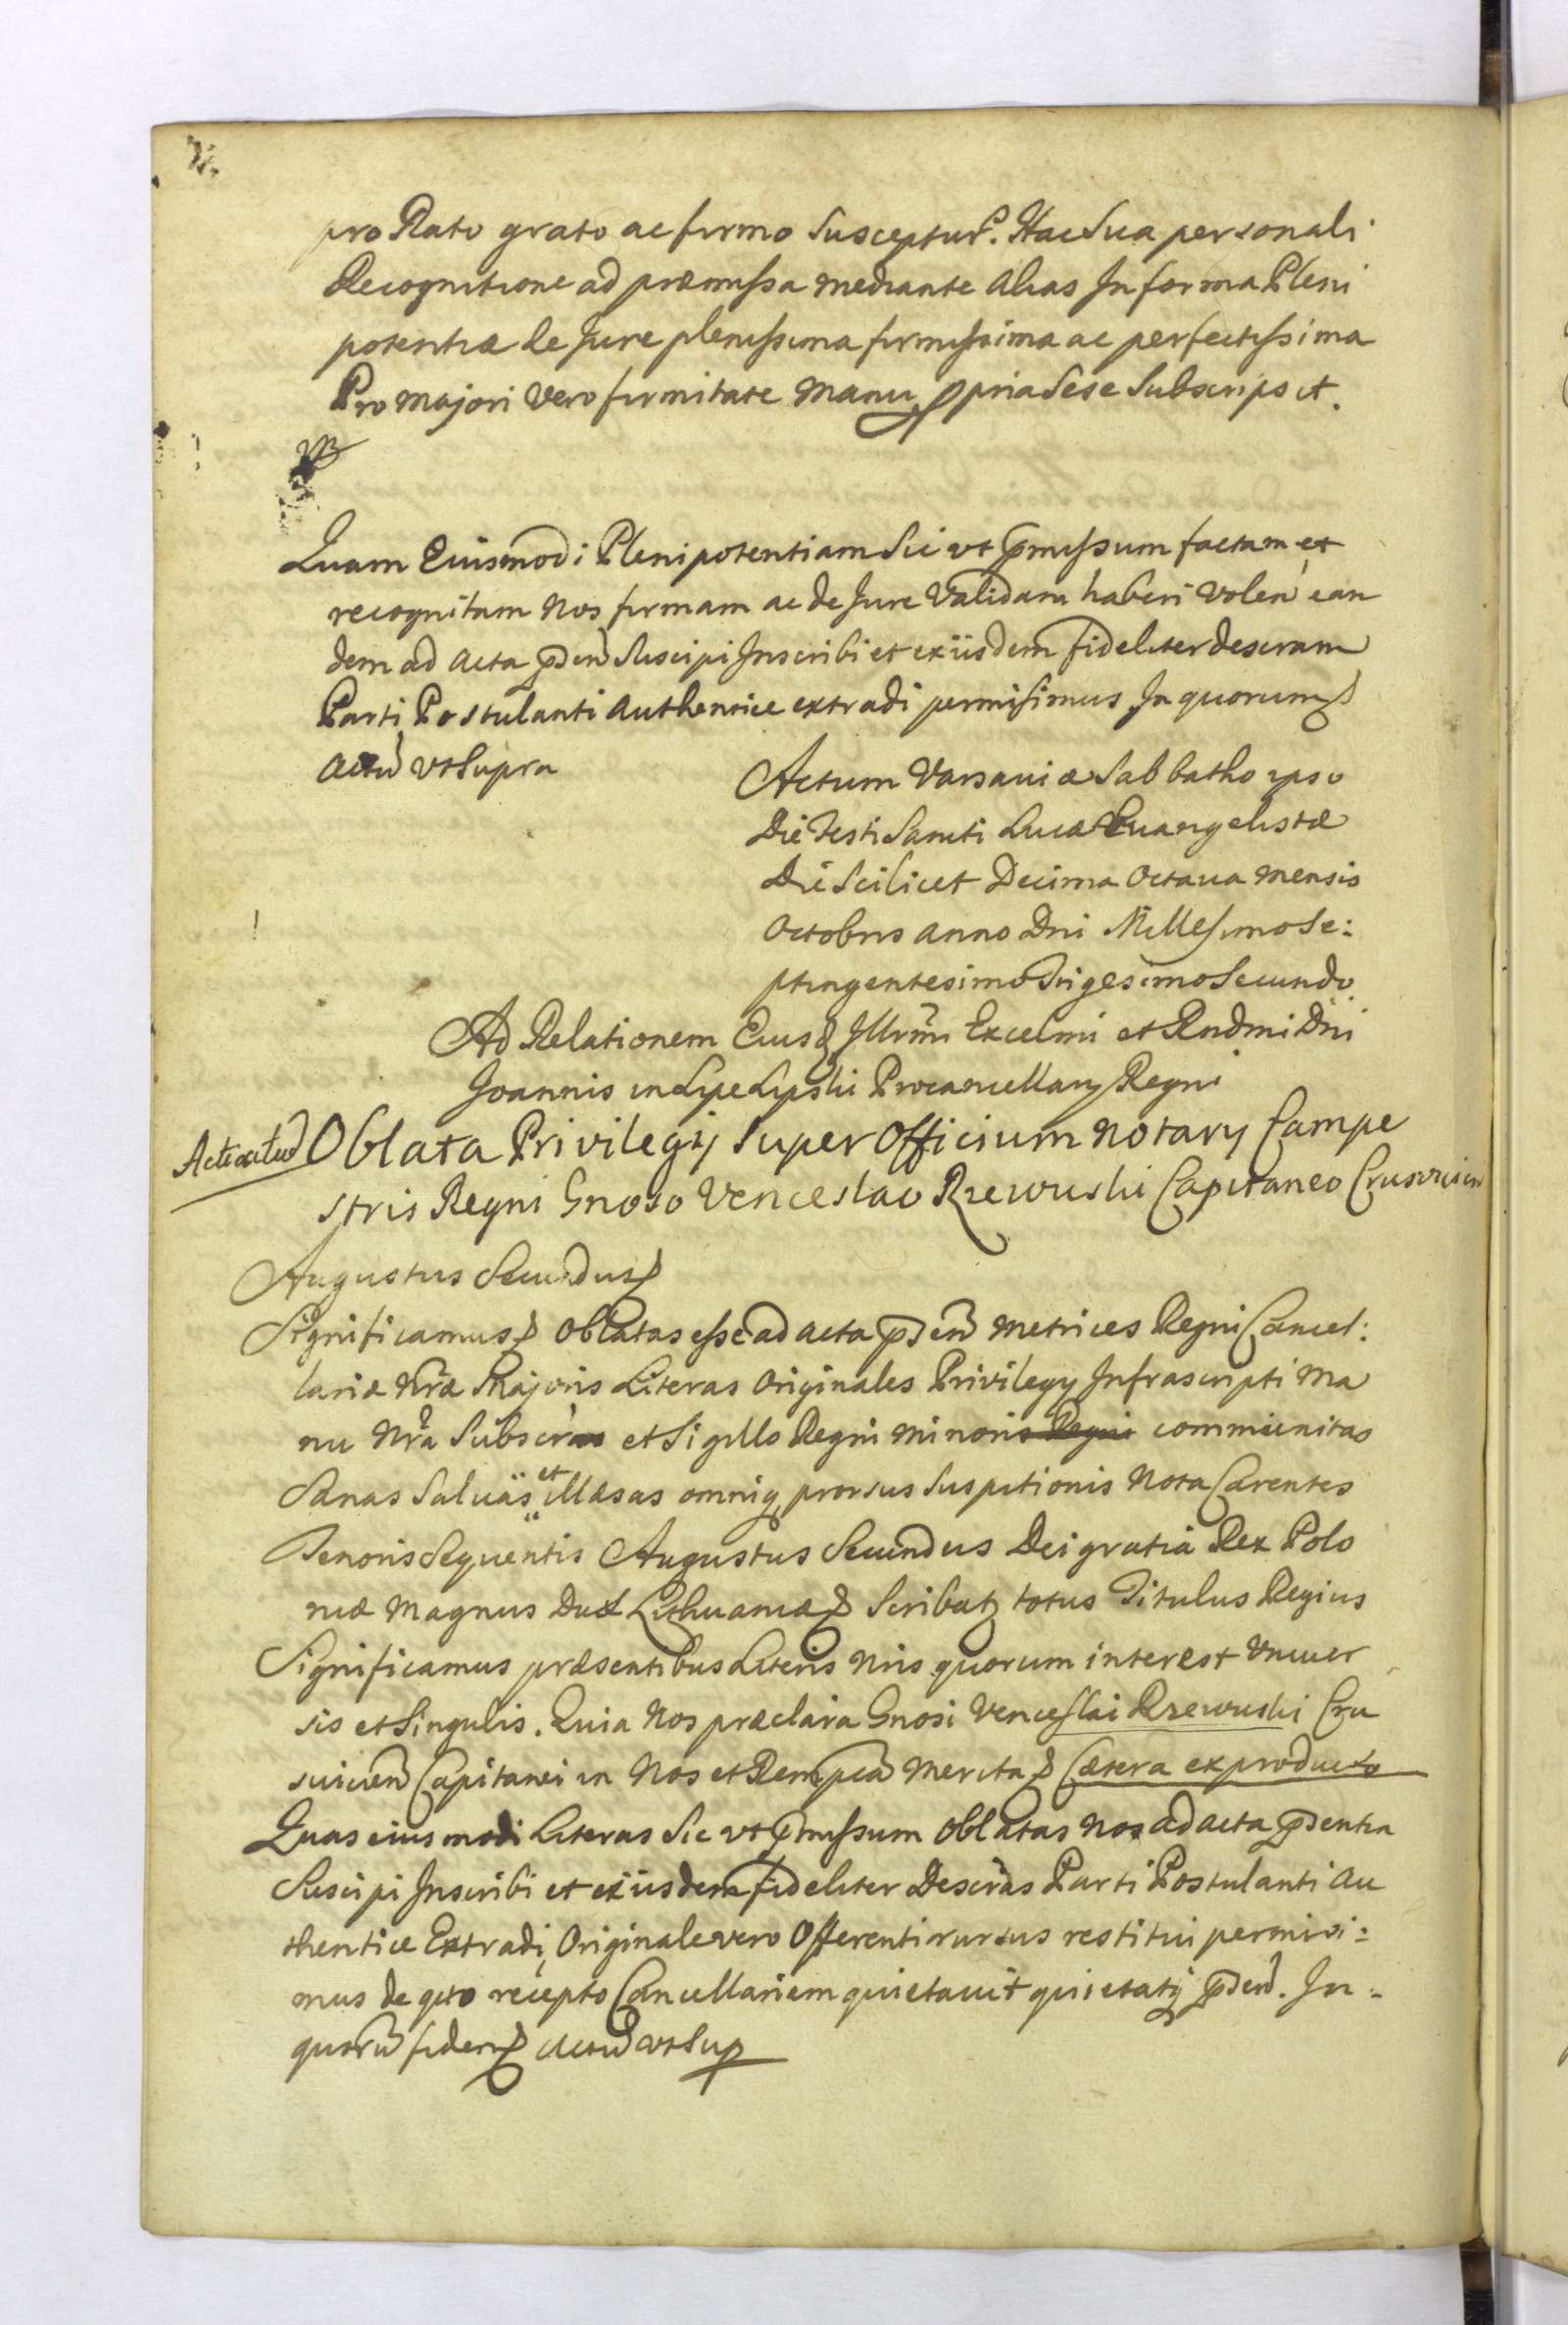 pro Rato grato ac firmo susceptur. Hac Sua personali
Recognitione ad præmissa mediante alias In forma Pleni
potentiæ de Jure plenissima firmissima ac perfectissima
Pro majori vero firmitate manu ppria sese subscripsit.
Quam Eiusmodi Plenipotentiam Sic vt pmissum factam et
recognitam Nos firmam ac de Jure Validam haberi volen ean
dem ad acta pden Suscipi Inscribi et exiisdem fideliter descram
Parti Postulanti Authentice extradi permisimus In quorum
actu vt Supra
Actum Varsaviæ Sabbatho ipso
Die Festi Sancti Lucæ Euangelistæ
Die Scilicet Decima Octaua mensis
Octobris anno Dni Millesimo Se:
ptingentesimo Trigesimo Secundo
Ad Relationem Eiusd Illrmi Excelmi et Rndmi Dni
Joannis in Lipe Lipski Procancellarij Regni
Acticatu Oblata Privilegij Super Officium Notarij Campe
stris Regni Gnoso Venceslao Rzewuski Capitaneo Crusvicien
Augustus Secundus
Significamus Oblatas esse ad acta pden Metrices Regni Cancel:
lariæ Nræ Majoris Literas Originales Privilegij Infrascripti Ma
nu Nra Subscras et Sigillo Regni minoris Regni communitas
Sanas Saluas et illæsas omniq prorsus Suspitionis Nota Carentes
Tenoris Sequentis Augustus Secundus Dei gratia Rex Polo
niæ Magnus Dux Lithuaniæ Scribat totus Titulus Regius
Significamus præsentibus Literis Nris quorum interest vniuer
sis et Singulis. Quia Nos præclara Gnosi Venceslai Rzewuski Cru
suicien Capitanei in Nos et Rempca Merita Cætera ex producto
Quas eiusmodi Literas Sic vt pmissum Oblatas Nos ad acta pdentia
Suscipi Inscribi et exiisdem fideliter Descras Parti Postulanti Au
thentice Extradi, Originale vero Offerenti rursus restitui permisi:
mus de quo recepto Cancellariem quietauit quietatq pden. In
quoru fidem actu vt Sup